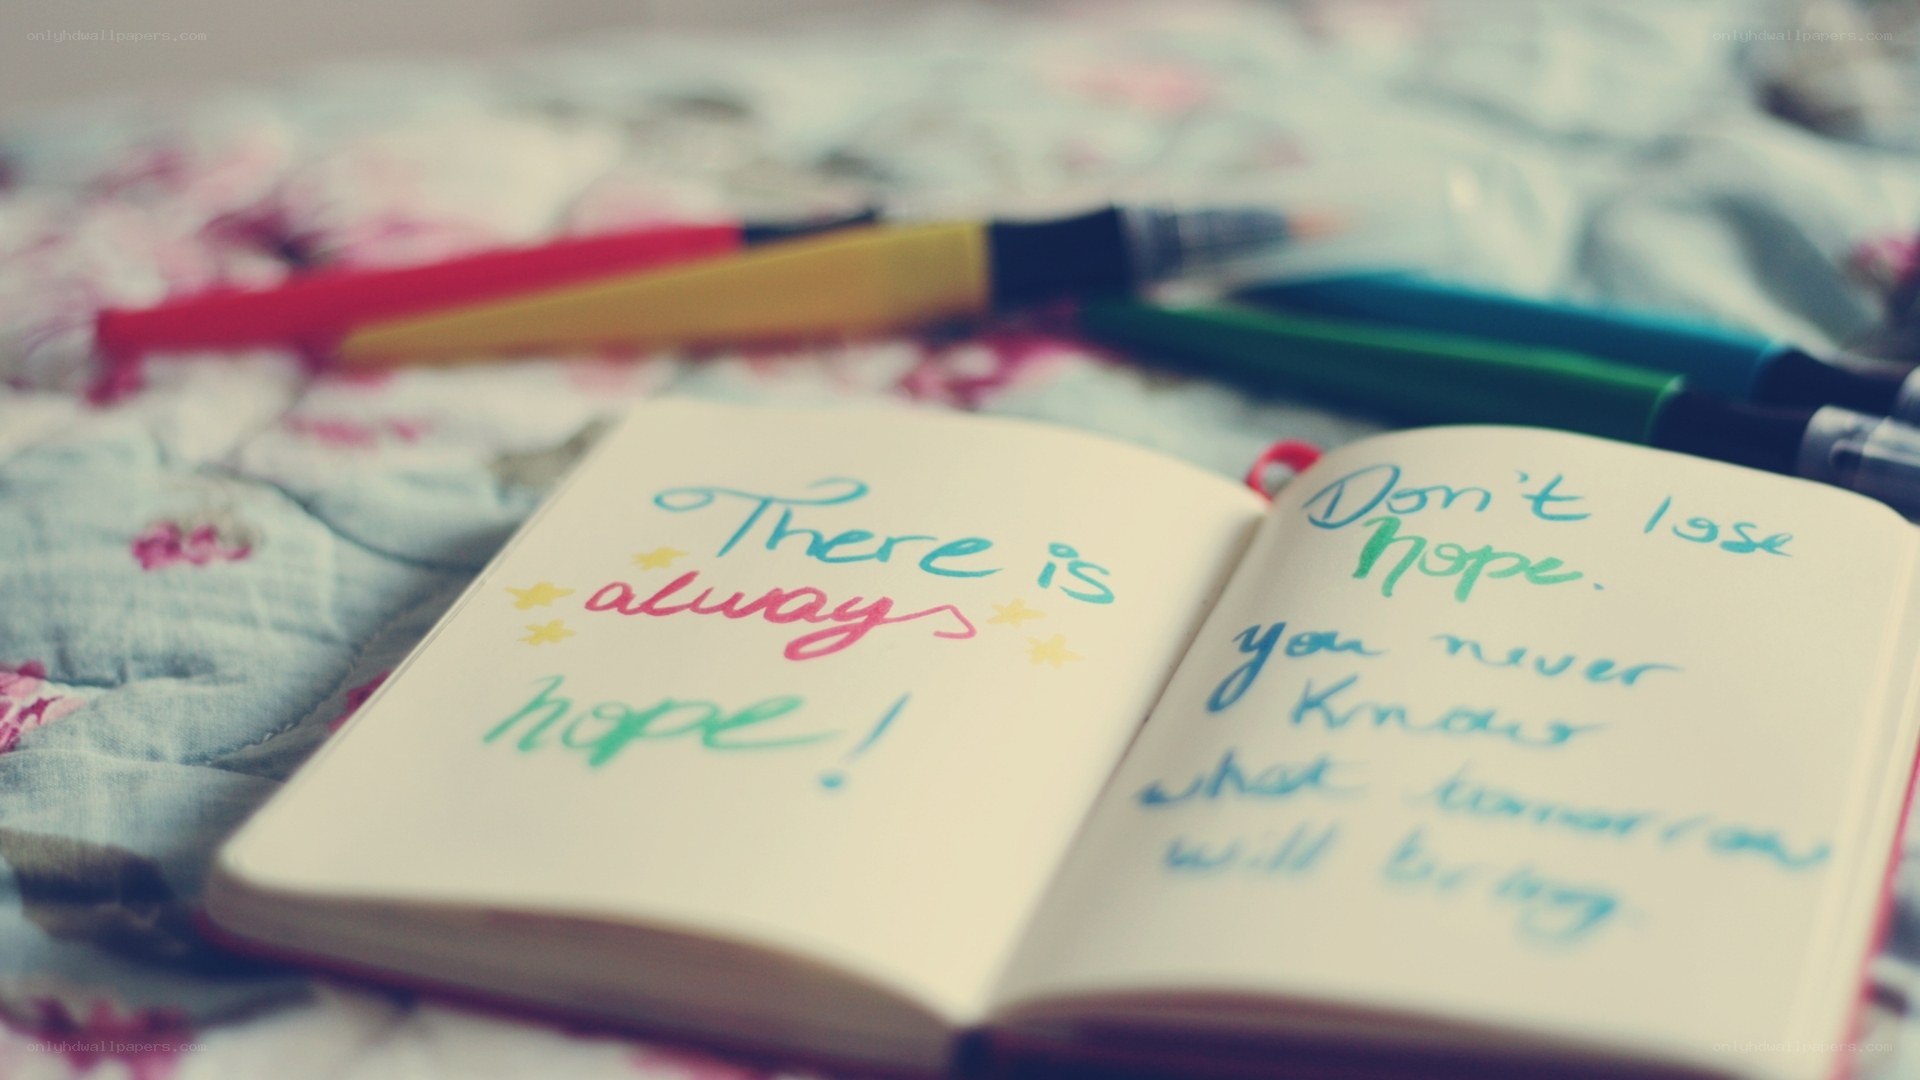 onlyhdwallpapers.com
onlyhdwallpapers.com
There is
always
hope!
Don't lose
hope.
you never
Know
what tomorrow
will bring.
onlyhdwallpapers.com
onlyhdwallpapers.com